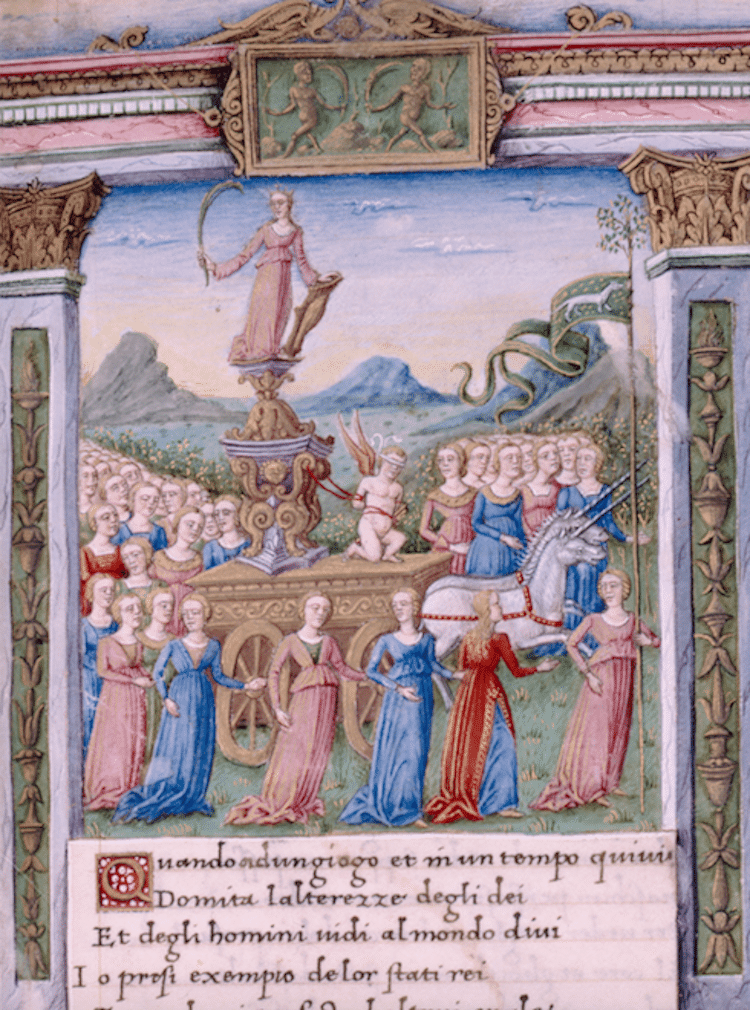 Quando adun giogo et in un tempo quiui
Domita lalterezze degli dei
Et degli homini uidi al mondo diui
I o presi exempio de lor stati rei